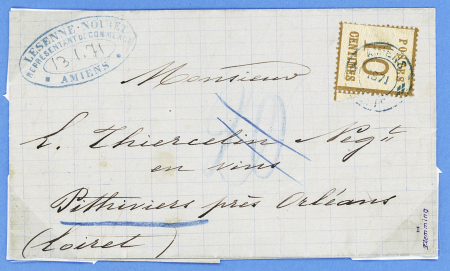 LESENNE-NOIRET
REPRÉSENTANT DE COMMERCE
13.1.71
AMIENS
POSTES
10
CENTIMES
Monsieur
L. Thiercelin Négt
en vins
10
Pithiviers près Orléans
(Loiret)
Flemming